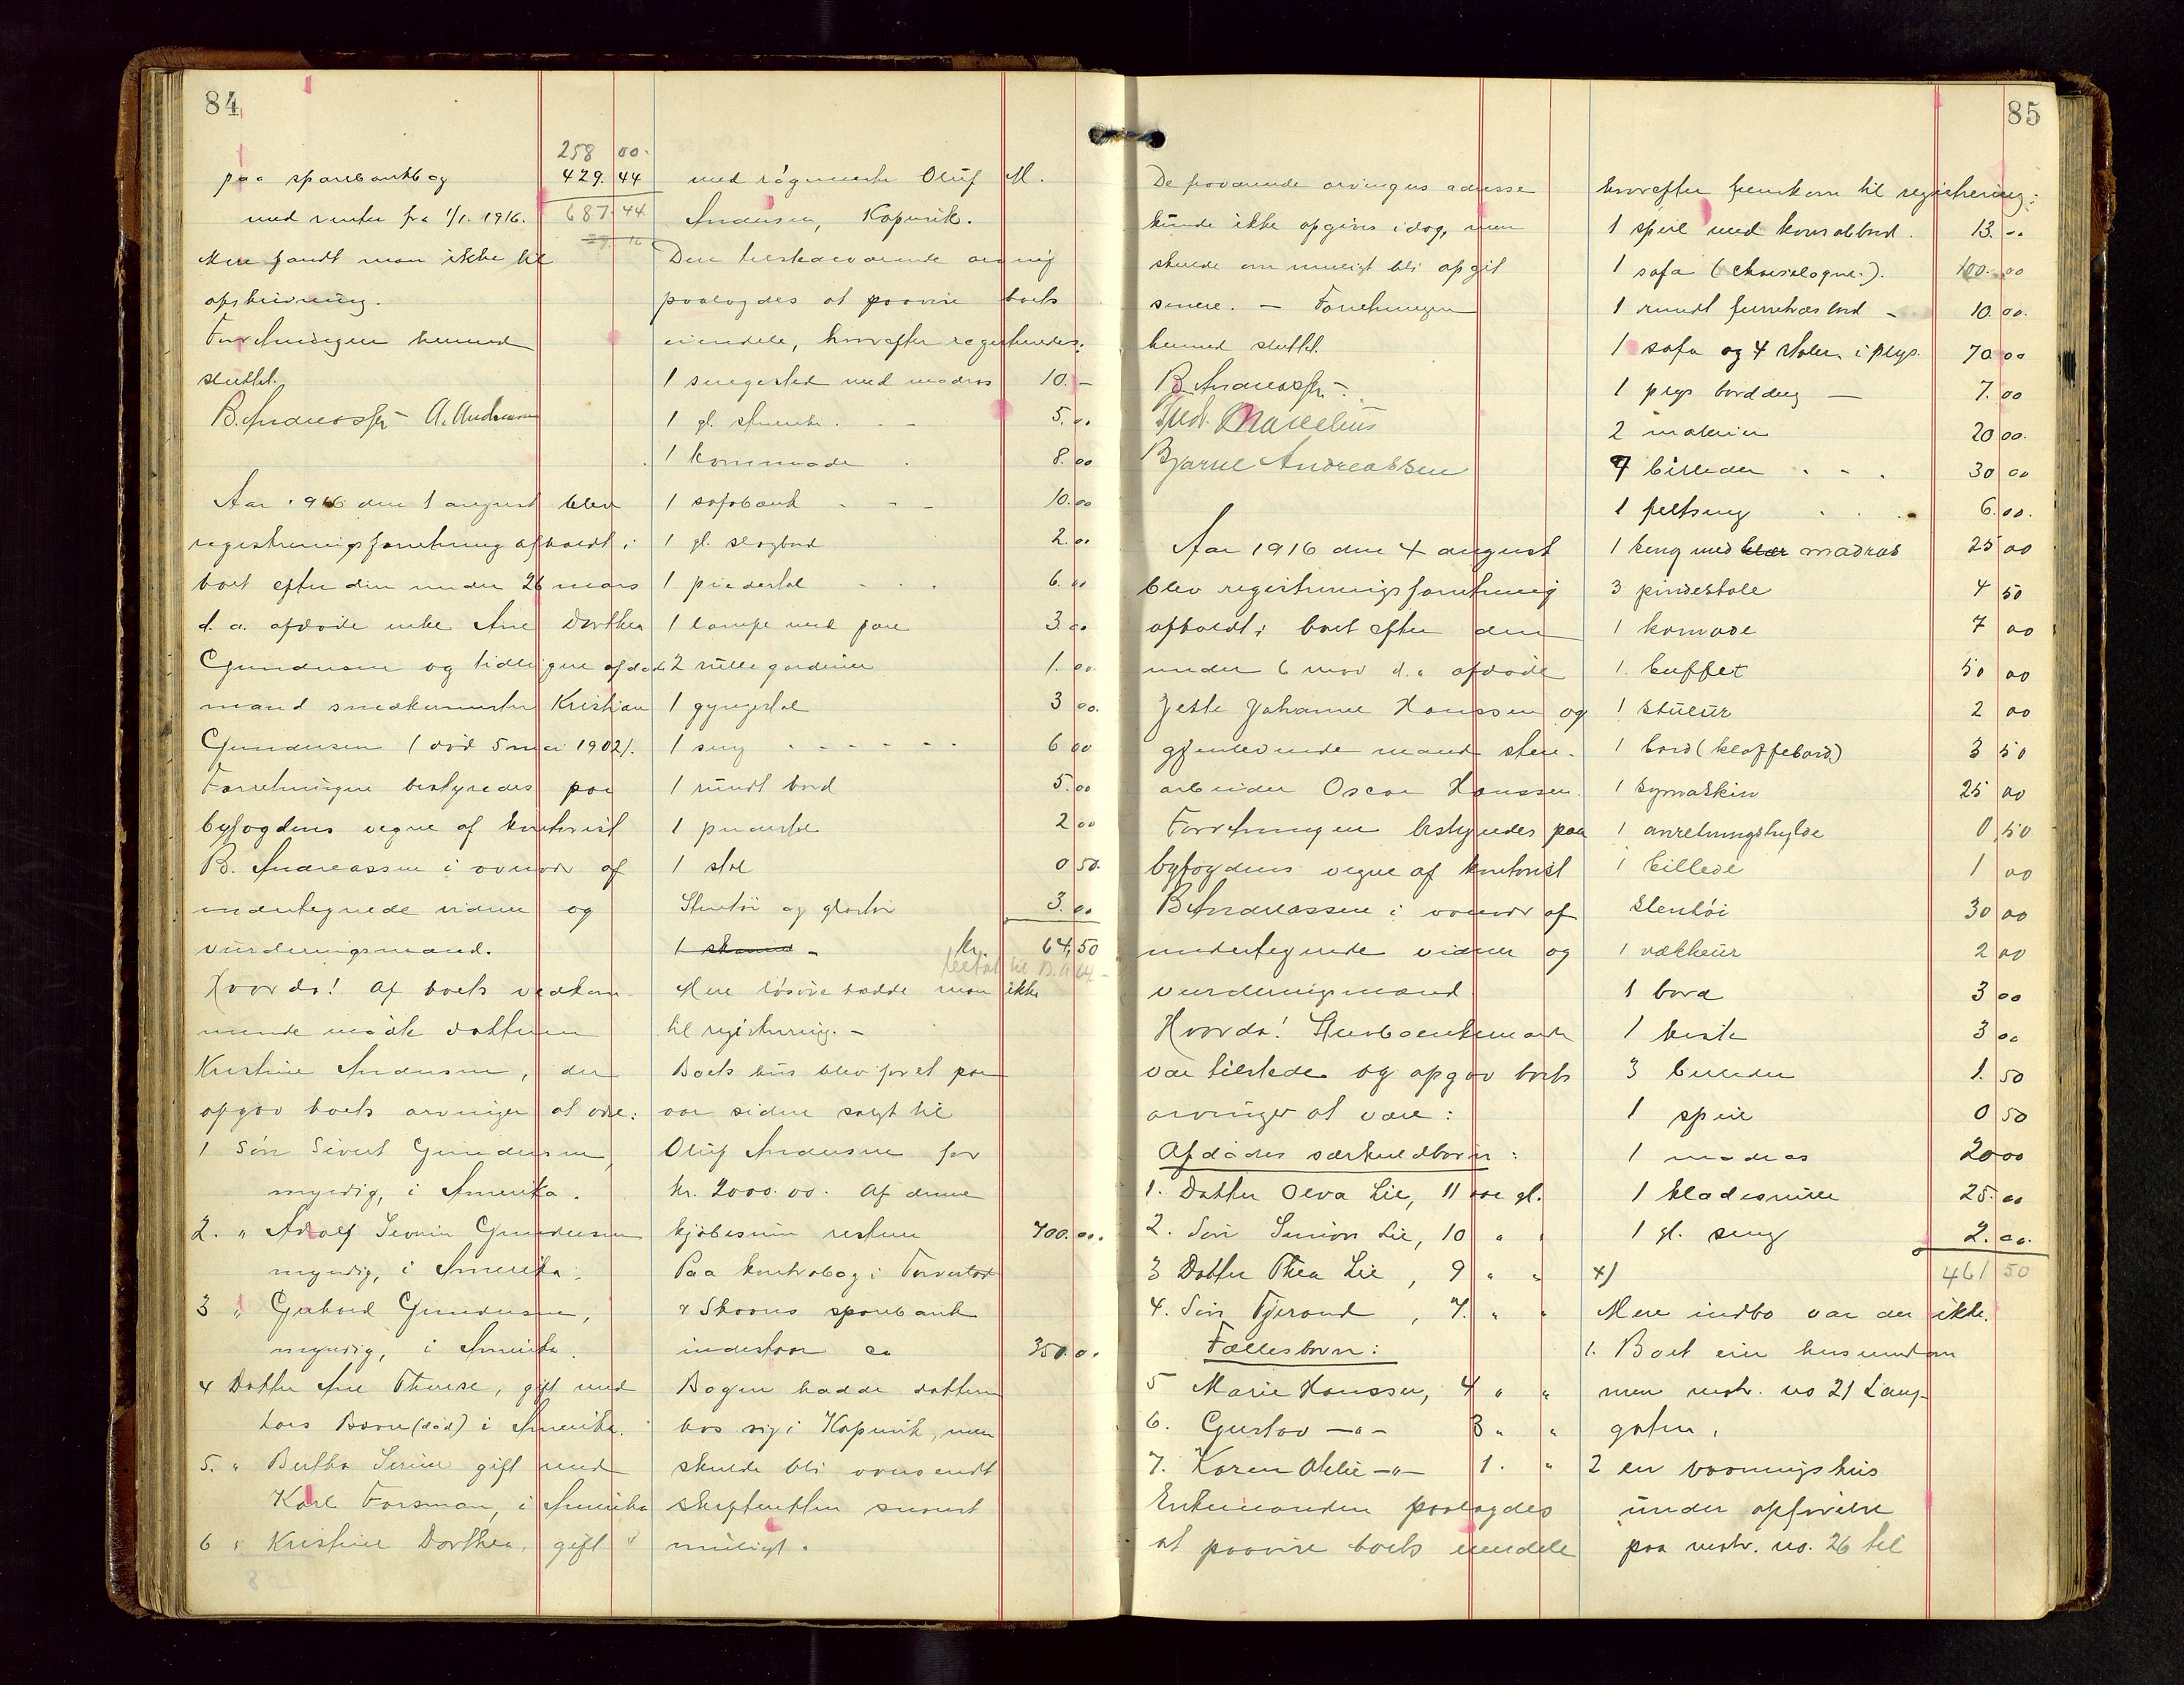 84
258 00
paa sparebankbog 429. 44
med renter fra 1/1. 1916. 687. 44
Mere fandt man ikke til
opskrivning.
Forretningen hermed
sluttet.
B. Andreassen A. Andreassen
Aar 1916 den 1 august blev
registreringsforretning afholdt i
boet efter den under 26 mars
d. a. afdöde enke Ane Dorthea
Gundersen og tidligere afdöde
mand snedkermester Kristian
Gundersen (död 5 mai 1902).
Forretningen bestyredes paa
byfogdens vegne af kontorist
B. Andreassen i overvær af
undertegnede vidner og
vurderingsmænd.
Hvorda! Af boets vedkom-
mende mödte datteren
Kristine Andersen, der
opgav boets arvinger at være:
1 Sön Sivert Gundersen,
myndig, i Amerika.
2. " Adolf Severin Gundersen
myndig, i Amerika.
3 " Gerhard Gundersen,
myndig, i Amerika.
4 Datter Ane Therese, gift med
Lars (död) i Amerika.
5. " Bertha Serine gift med
Karl Forsman, i Amerika
6 " Kristine Dorthea, gift
med Oluf M.
Andersen, Kopervik.
Den tilstedeværende arving
paalagdes at paavise boets
eiendele, hvorefter registreredes:
1 sengested med madras 10. -
1 gl. 5.00
1 kommode 8.00
1 sofabænk 10.00
1 gl. slagbord 2.00
1 pindestol 6.00
1 lampe med 3.00
2 rullegardiner 1.00
1 gyngestol 3 00
1 seng 6 00
1 rundt bord 5.00
1 pindestol 2 00
1 stol 0 50
Stentöi og glastöi 3.00
kr. 64,50
Mere lösöre hadde man ikke
til registrering. -
Boets hus blev for et par
aar siden solgt til
Oluf Andersen for
kr. 2000.00. Af denne
kjöbesum resterer 700.00.
Paa kontrabog i Torvestad
& Skaares sparebank
indestaar ca 350.00
Bogen hadde datteren
hos sig i Kopervik, men
skulde bli oversendt
skifteretten snarest
muligt.
85
De fraværende arvingers adresse
kunde ikke opgives idag, men
skulde om muligt bli opgit
senere. - Forretningen
hermed sluttet.
B. Andreassen
Marcelius
Bjarne Andreassen
Aar 1916 den 4 august
blev registreringsforretning
afholdt i boet efter den
under 6 mai d. a. afdöde
Jette Johanne Hanssen og
gjenlevende mand sten-
arbeider Oscar Hanssen.
Forretningen bestyredes paa
byfogdens vegne af kontorist
B. Andreassen i overvær af
undertegnede vidner og
vurderingsmænd
Hvorda! Stervboenkemanden
var tilstede og opgav boets
arvinger at være:
Afdödes særkuldbörn:
1. Datter Olva Lie, 11 aar gl.
2. Sön Simon Lie, 10 " "
3 Datter Thea Lie, 9 " "
4. Sön Tjerand, 7. " "
Fællesbörn:
5 Marie Hanssen, 4 " "
6. Gustav -"- 3 " "
7. Karen Otelie -"- 1. "
Enkemanden paalagdes
at paavise boets eiendele
hvorefter fremkom til registrering:
1 speil med konsolbord. 13.00
1 sofa (chaiselogne.). 100.00
1 rundt furretræs bord - 10.00.
1 sofa og 4 stoler i plys. 70 00
1 plys borddug - 7.00
2 malerier 20 00.
7 billeder 30 00
1 feltseng 6.00.
1 seng med klær madras 25 00
3 pindestole 4 50
1 komode 7 00
1. buffet 50 00
1 stueur 2 00
1 bord (klaffebord) 3 50
1 symaskin 25 00
1 anretningshylde 0,50
1 billede 1 00
Stentöi 30 00
1 vækkeur 2 00
1 bord 3 00
1 3 00
3 billeder 1. 50
1 speil 0 50
1 madras 20 00
1 klædesrulle 25.00
1 gl. seng 2.00.
x) 461 50
Mere indbo var der ikke.
1. Boet eier hus
men matr. no 21 Lang-
gaten.
2 en vaaningshus
under opförelse
paa matr. no. 26 til